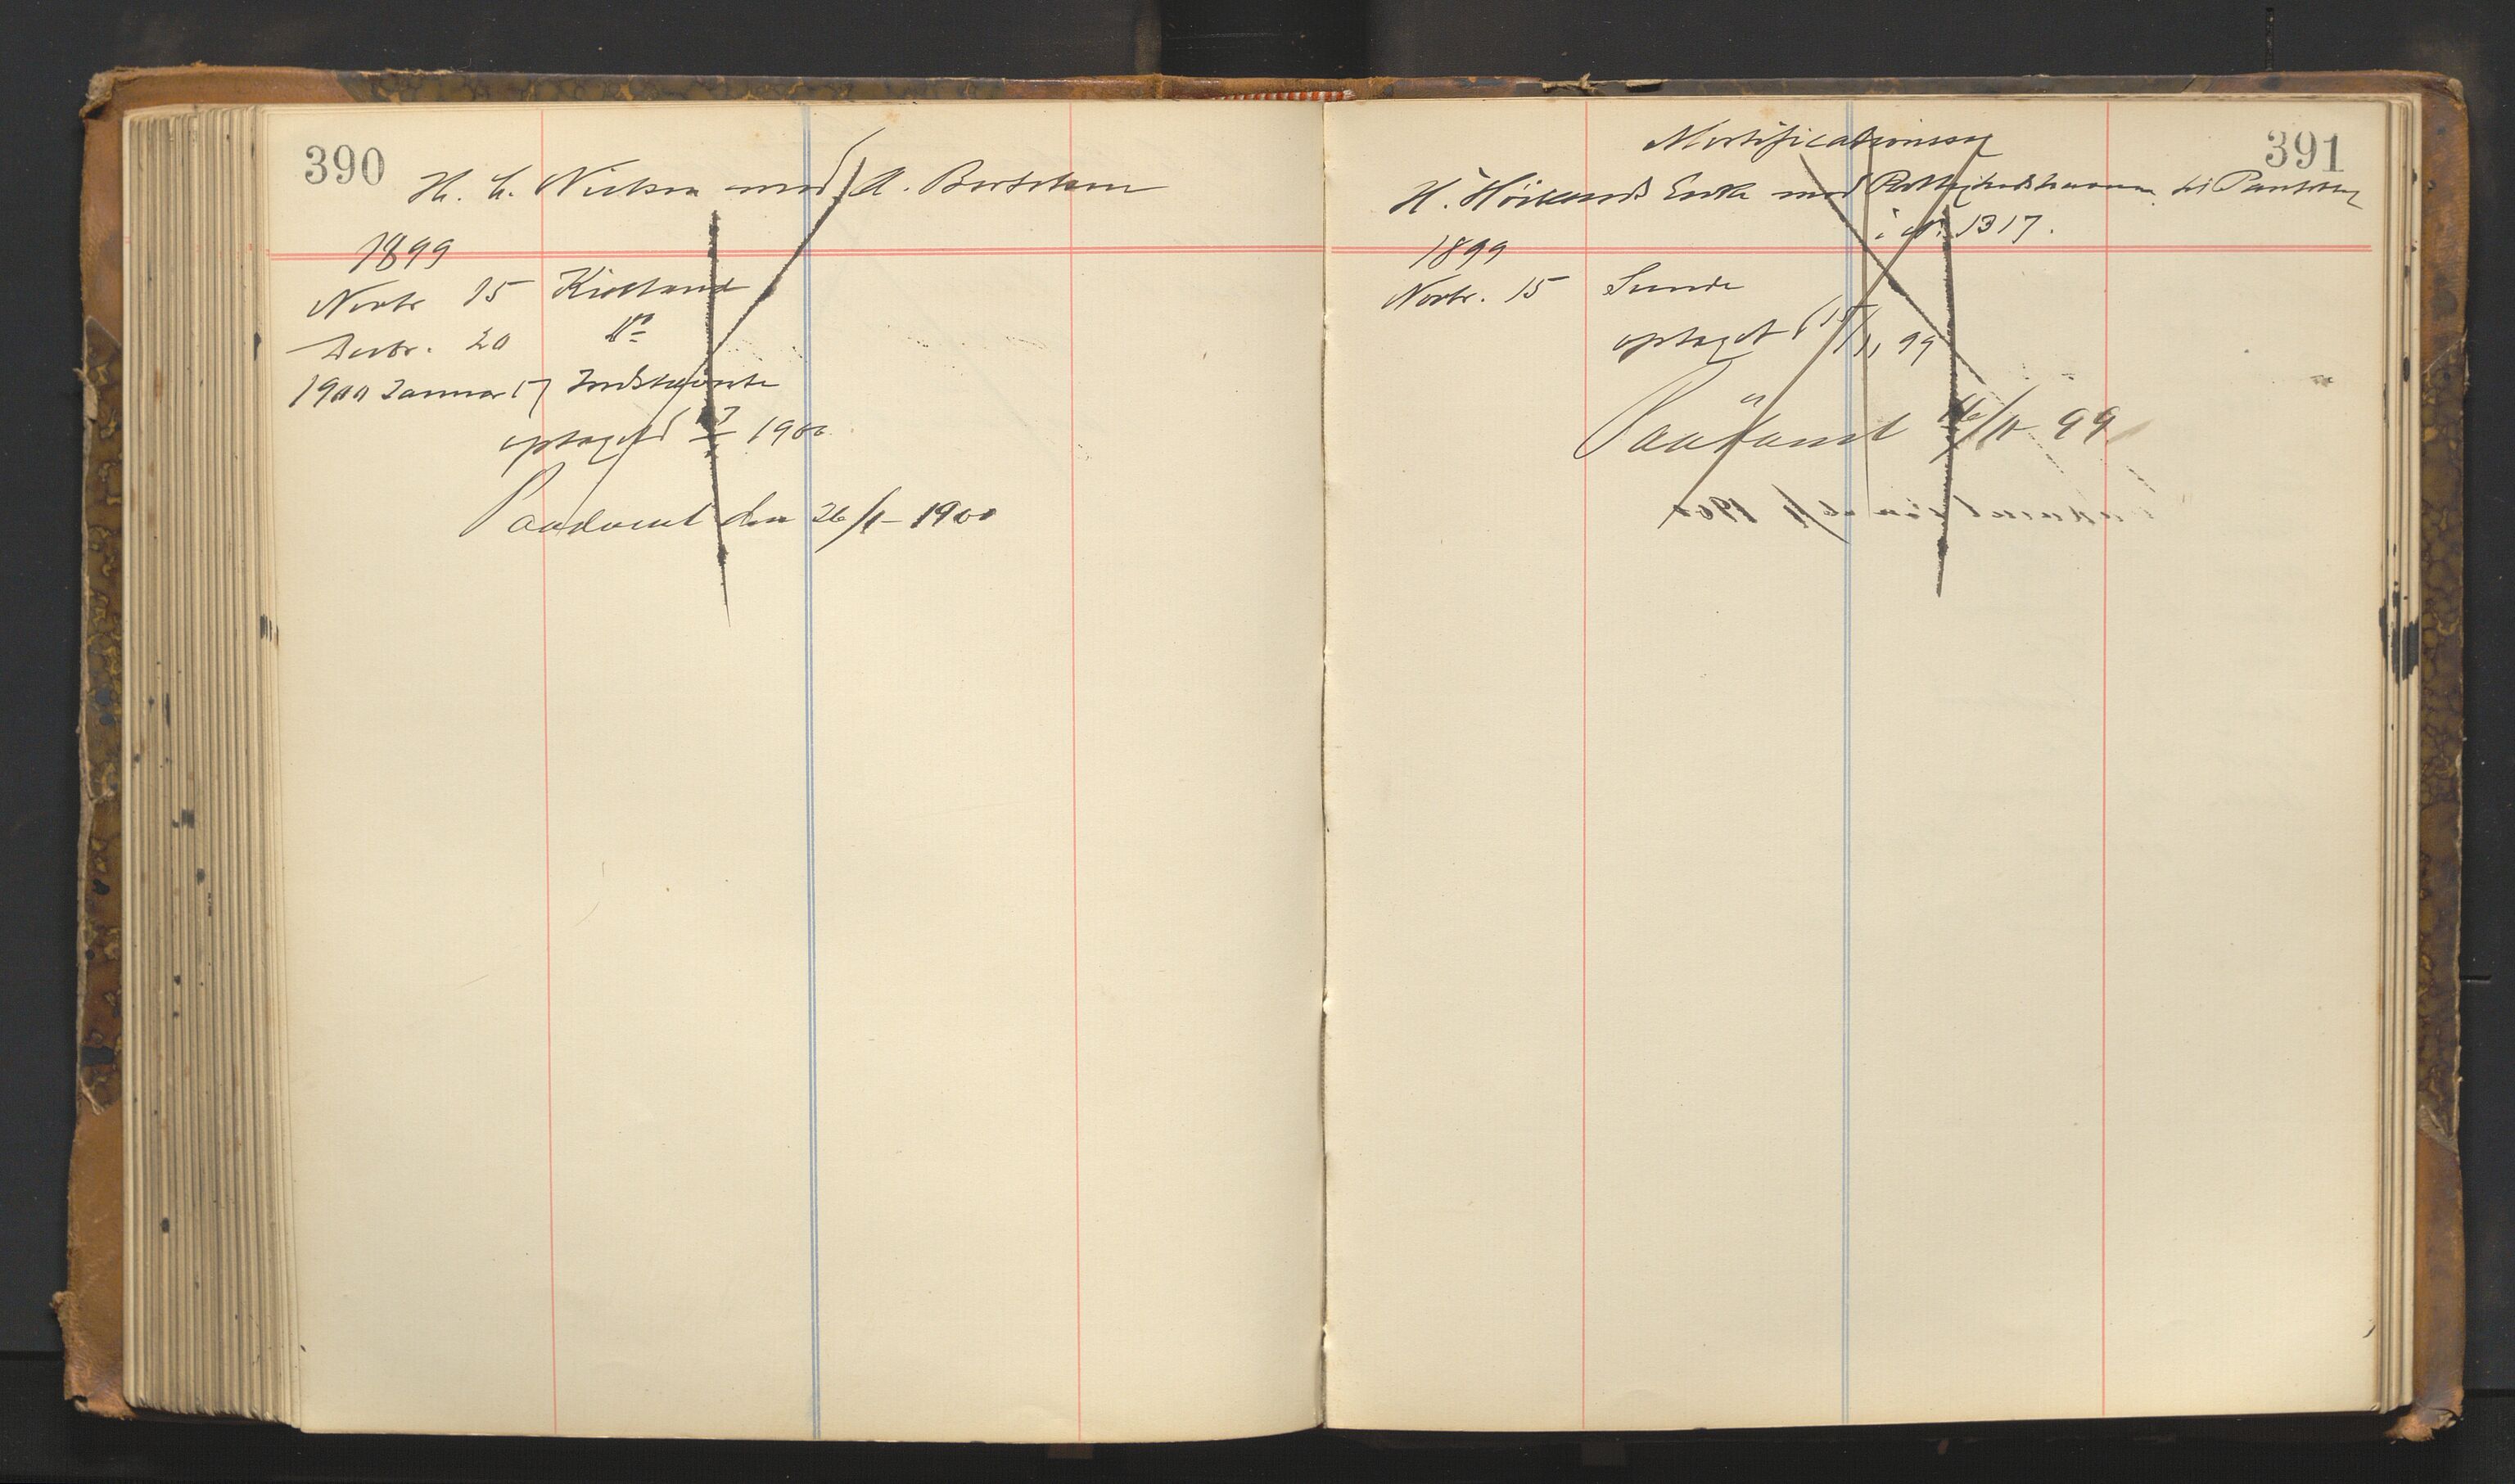 390
H. C. Nielsen mod A. Bertelsen
1899
Novbr 15 Kielland
Decbr. 20 do
1900 Januar 17 Indstevnte
optaget 17/1 1900
Paadømt den 26/1 - 1900
391
Mortificationssag
H. Höilands Enke mod Rettighedshaverne til Pantobl.
i No. 1317.
1899
Novbr. 15 Sunde
optaget 15/11 99
Paadømt 16/11 99